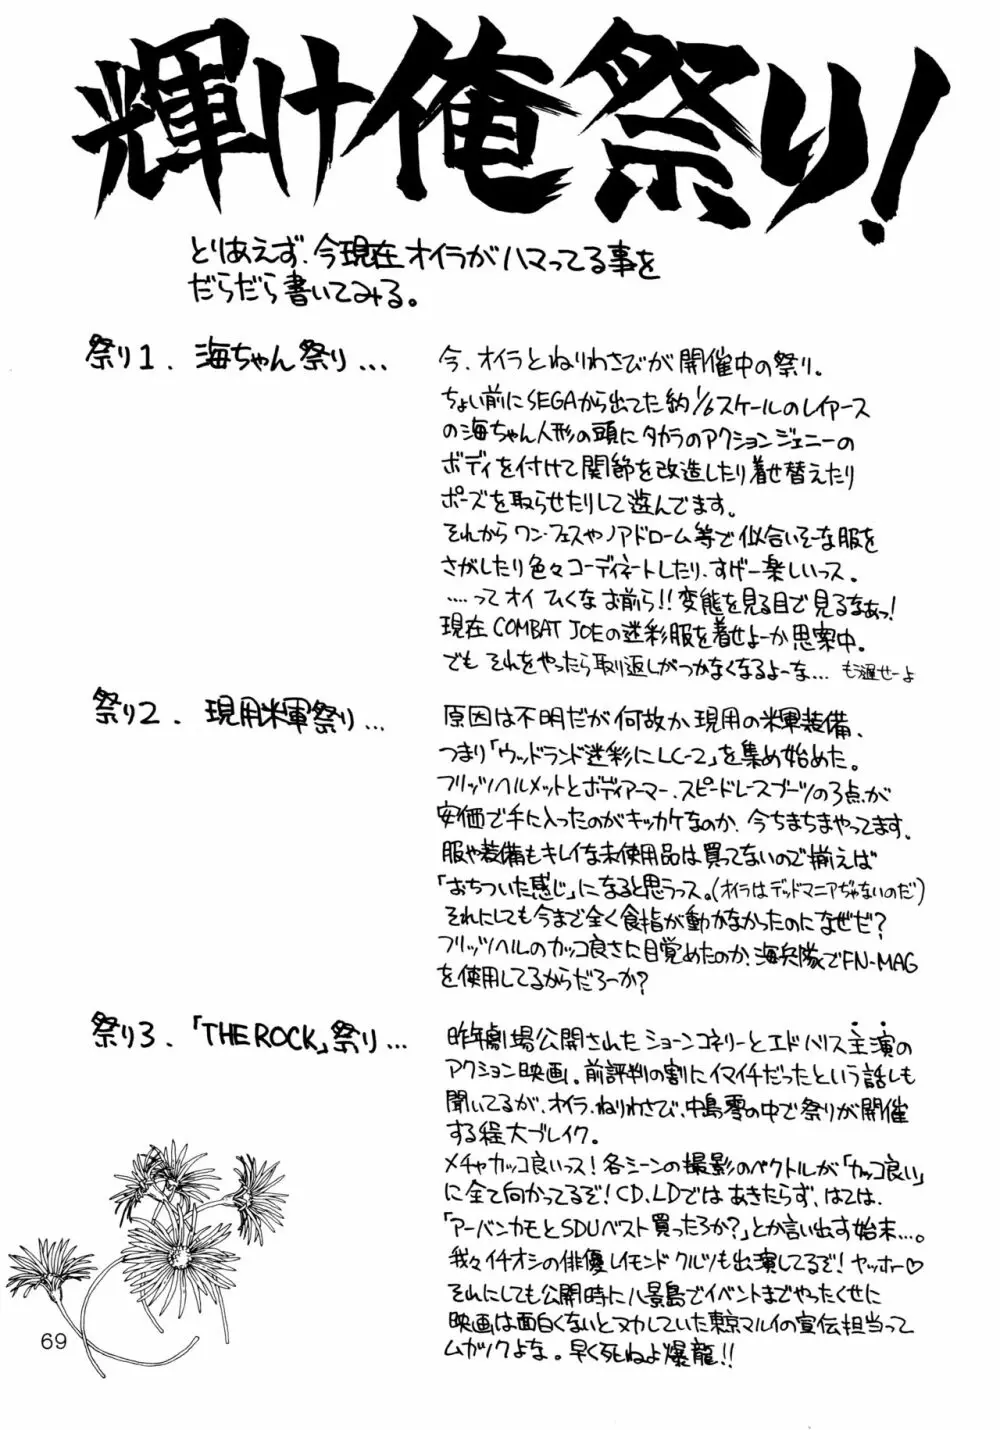 輝け俺祭り!
とりあえず、今現在オイラがハマってる事を
だらだら書いてみる。
祭り1. 海ちゃん祭り...
今、オイラとねりわさびが開催中の祭り。
ちょい前にSEGAから出てた約1/6スケールのレイアース
の海ちゃん人形の頭にタカラのアクションジェニーの
ボディを付けて関節を改造したり着せ替えたり
ポーズを取らせたりして遊んでます。
それからワンフェスやノアドローム等で似合いそーな服を
さがしたり色々コーディネートしたり、すげー楽しいっス。
....ってオイ ひくなお前ら!!変態を見る目で見るなぁっ!
現在COMBAT JOEの迷彩服を着せよーか思案中。
でもそれをやったら取り返しがつかなくなるよーな... もう遅せーよ
祭り2. 現用米軍祭り...
原因は不明だが何故か現用の米軍装備、
つまり「ウッドランド迷彩にLC-2」を集め始めた。
フリッツヘルメットとボディアーマー、スピードレースブーツの3点が
安価で手に入ったのがキッカケなのか、今ちまちまやってます。
服や装備もキレイな未使用品は買ってないので揃えば
「おちついた感じ」になると思うっス。(オイラはデッドマニアぢゃないのだ)
それにしても今まで全く食指が動かなかったのになぜだ?
フリッツヘルのカッコ良さに目覚めたのか、海兵隊でFN-MAG
を使用してるからだろーか?
祭り3.「THE ROCK」祭り...
昨年劇場公開されたショーンコネリーとエドハリス主演の
アクション映画。前評判の割にイマイチだったという話しも
聞いてるが、オイラ、ねりわさび、中島零の中で祭りが開催
する程大ブレイク。
メチャカッコ良いっス!各シーンの撮影のベクトルが「カッコ良い」
に全て向かってるぞ!CD、LDではあきたらず、はては、
「アーバンカモとSDUベスト買ったろか?」とか言い出す始末...。
我々イチオシの俳優レイモンドクルツも出演してるぞ!ヤッホー♡
それにしても公開時に八景島でイベントまでやったくせに
映画は面白くないとヌカしていた東京マルイの宣伝担当って
ムカツクよな。早く死ねよ爆龍!!
69